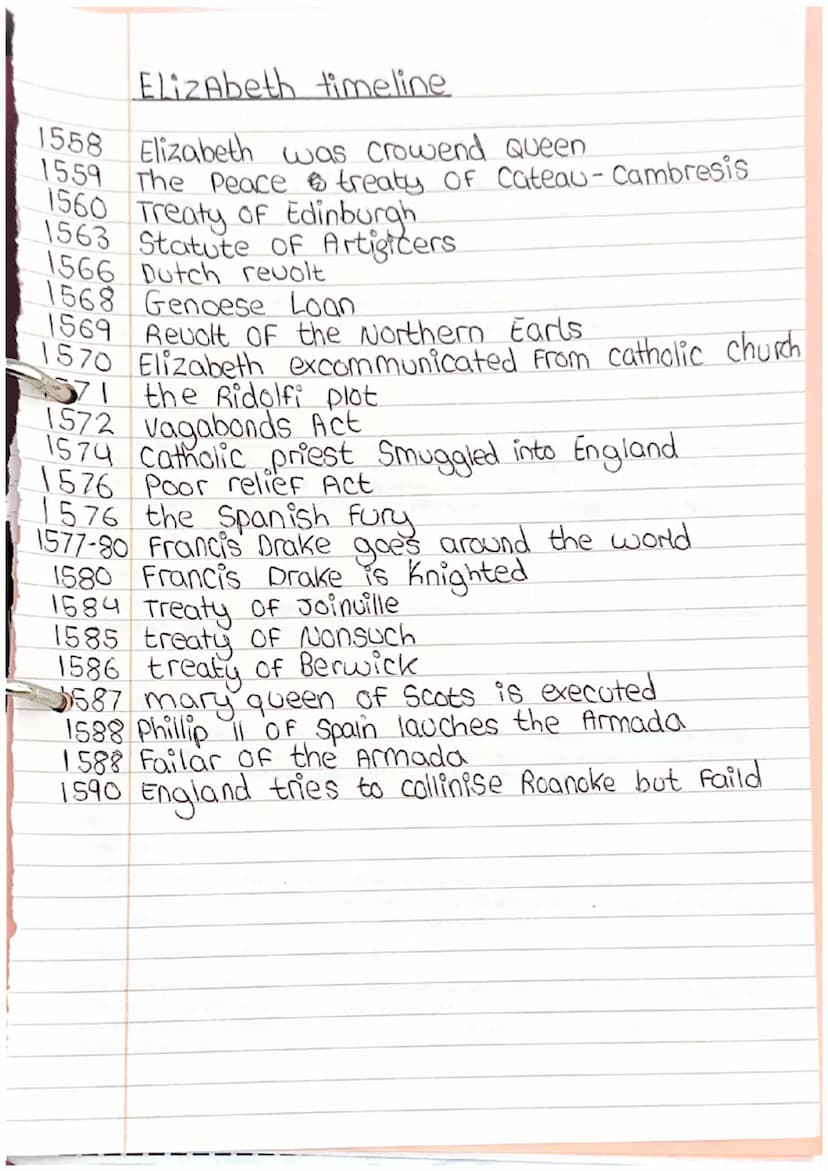 Elizabeth timeline
1558 Elizabeth was crowend queen
1559 The Peace treaty of Cateau-Cambresis
1560 Treaty of Edinburgh
1563 Statute of Artigicers
1566 Dutch revolt
1568 Genoese Loan
1569 Revolt of the Northern Earls
1570 Elizabeth excommunicated from catholic church
71 the Ridolfi plot
1572 vagabonds Act
1574 catholic priest smuggled into England
1576 Poor relief Act
1576 the Spanish fury
1577-80 Francis Drake goes around the world
1580 Francis Drake is Knighted
1584 Treaty of Joinville
1585 treaty of Nonsuch
1586 treaty of Berwick
1587 mary queen of Scots is executed
1588 Phillip II of Spain lauches the Armada
1588 Failar of the Armada
1590 England tries to collinise Roanoke but faild